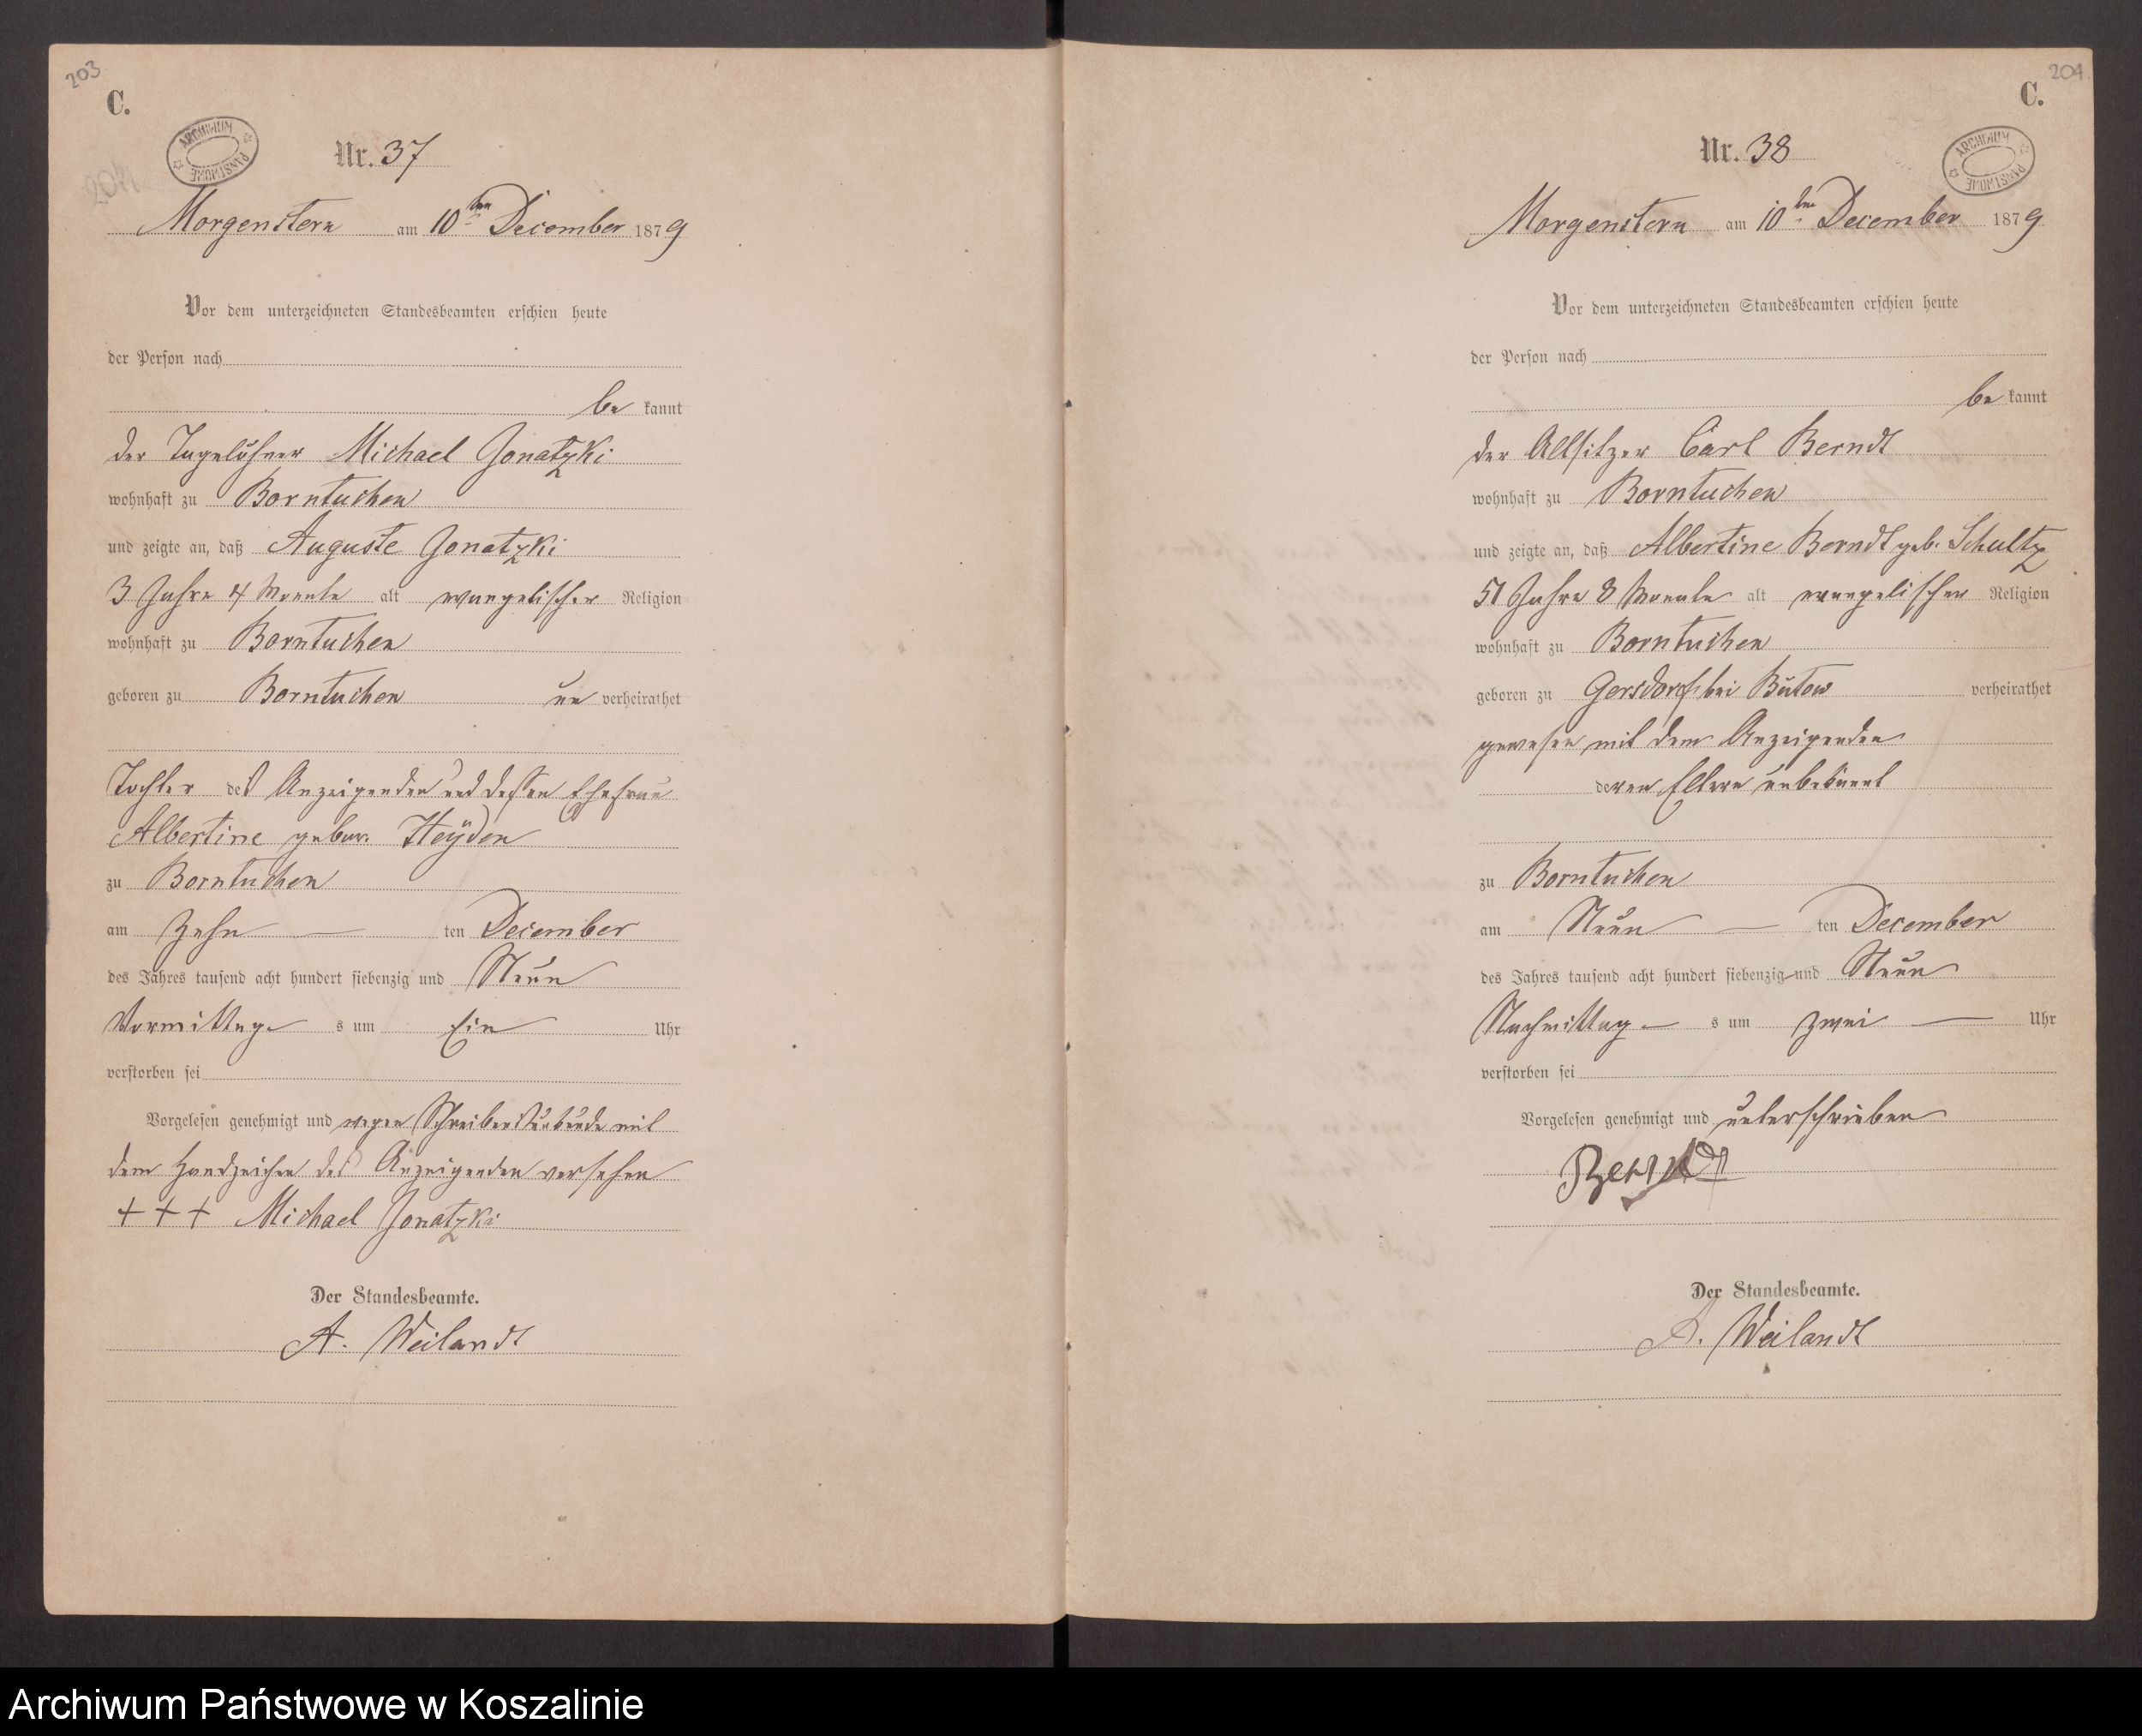 203
C.
ARCHIWUM PAŃSTWOWE
Nr. 37
Morgenstern am 10ten December 1879
Vor dem unterzeichneten Standesbeamten erschien heute
der Person nach
be kannt
der Tagelöhner Michael Jonatzki
wohnhaft zu Borntuchen
und zeigte an, daß Auguste Jonatzki
3 Jahre 4 Monate alt evangelischer Religion
wohnhaft zu Borntuchen
geboren zu Borntuchen un verheirathet
Tochter des Anzeigenden und dessen Ehefrau
Albertine gebor. Heÿden
zu Borntuchen
am zehn ten December
des Jahres tausend acht hundert siebenzig und Neun
Vormittag s um Ein Uhr
verstorben sei
Vorgelesen genehmigt und wegen Schreibensunkunde mit
dem Handzeichen des Anzeigenden versehen
+ + + Michael Jonatzki
Der Standesbeamte.
A. Weilandt
204
C.
ARCHIWUM PAŃSTWOWE
Nr. 38
Morgenstern am 10ten December 1879
Vor dem unterzeichneten Standesbeamten erschien heute
der Person nach
be kannt
der Altsitzer Carl Berndt
wohnhaft zu Borntuchen
und zeigte an, daß Albertine Berndt geb. Schultz
51 Jahre 8 Monate alt evangelischen Religion
wohnhaft zu Borntuchen
geboren zu Gersdorf bei Bütow verheirathet
gewesen mit dem Anzeigenden
deren Eltern unbekannt
zu Borntuchen
am Neun ten December
des Jahres tausend acht hundert siebenzig und Neun
Nachmittag s um zwei Uhr
verstorben sei
Vorgelesen genehmigt und unterschrieben
Berndt
Der Standesbeamte.
A. Weilandt
Archiwum Państwowe w Koszalinie